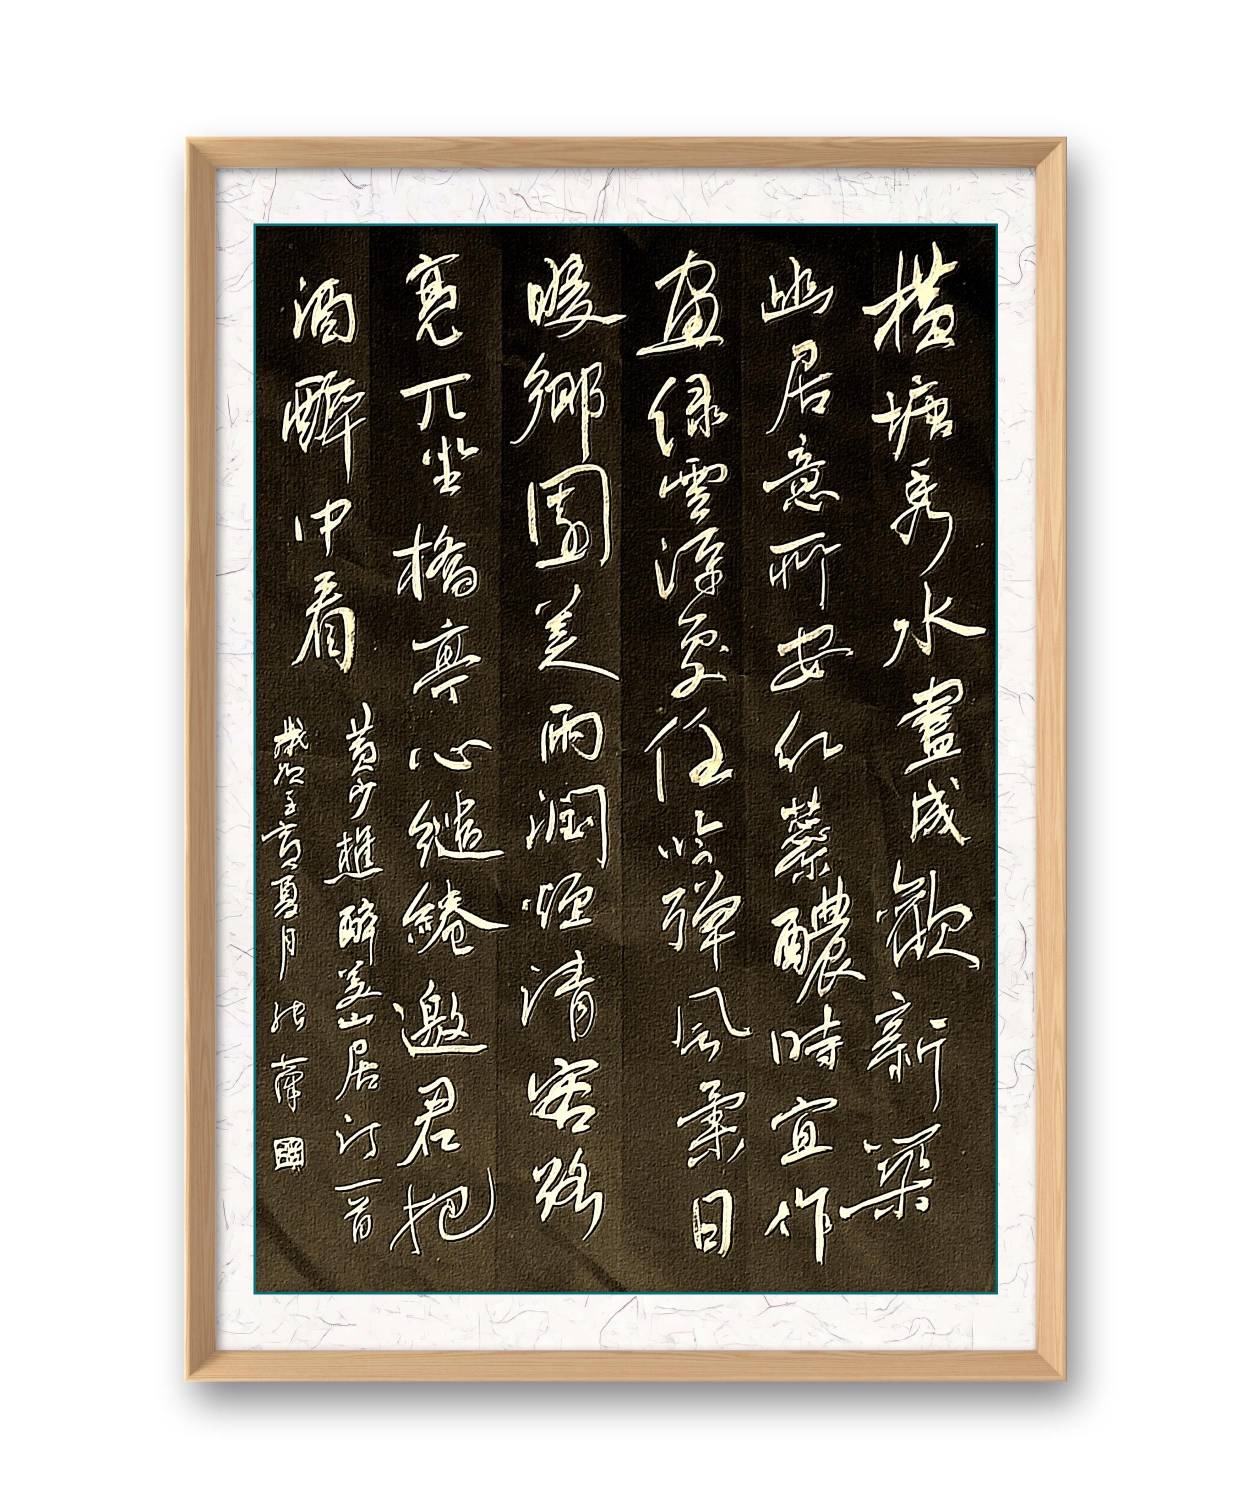 橫塘秀水盡成歡新築
幽居意所安紅葉醲時宜作
畫綠雲深處任吟彈風柔日
暖鄉園美雨潤煙清客路
寬兀坐橋亭心繾綣邀君把
酒醉中看
黃少樵醉美山居詩一首
歲次壬寅夏月張